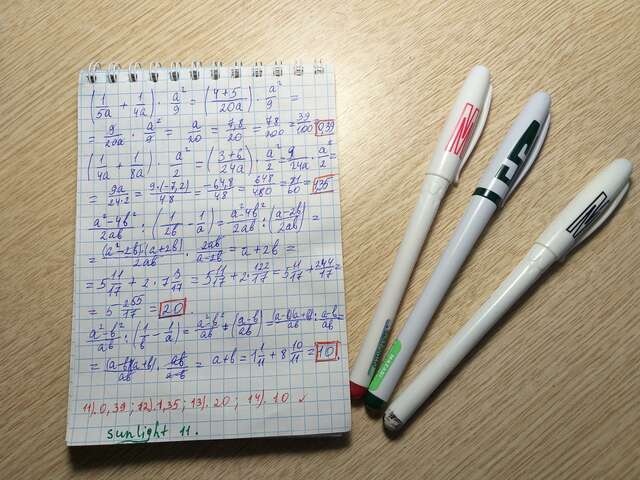 (1/5a + 1/4a) · a²/9 = (4+5)/20a · a²/9 =
= 9/20a · a²/9 = a/20 = 7,8/20 = 78/200 = 39/100 0,39
(1/4a + 1/8a) · a²/2 = (3+6)/24a · a²/2 = 9/24a · a²/2 =
= 9a/24·2 = 9·(-7,2)/48 = -64,8/48 = 648/480 = 81/60 = 1,35
a²-4b²/2ab : (1/2b - 1/a) = a²-4b²/2ab : (a-2b)/2ab =
= (a-2b)·(a+2b)/2ab · 2ab/a-2b = a+2b =
= 5 11/17 + 2 · 7 3/17 = 5 11/17 + 2 · 122/17 = 5 11/17 + 244/17 =
= 5 255/17 = 20
a²-b²/ab : (1/b - 1/a) = a²-b²/ab : (a-b/ab) = (a-b)(a+b)/ab : a-b/ab =
= (a-b)(a+b)/ab · ab/a-b = a+b = 1 1/11 + 8 10/11 = 10
11). 0,39; 12). 1,35; 13). 20; 14). 10
sunlight 11.